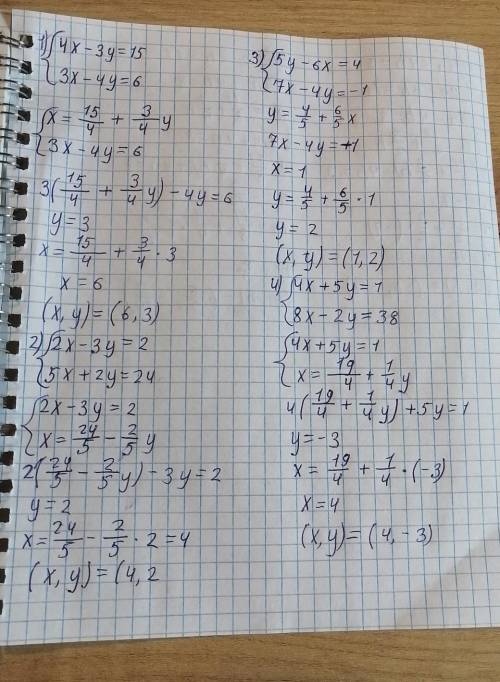 1) { 4x-3y=15
3x-4y=6
{ x= 15/4 + 3/4 y
3x-4y=6
3( 15/4 + 3/4 y)-4y=6
y=3
x= 15/4 + 3/4 · 3
x=6
(x, y)=(6,3)
2) { 2x-3y=2
5x+2y=24
{ 2x-3y=2
x= 24/5 - 2/5 y
2( 24/5 - 2/5 y)-3y=2
y=2
x= 24/5 - 2/5 · 2=4
(x, y)=(4,2
3) { 5y-6x=4
7x-4y=-1
y= 4/5 + 6/5 x
7x-4y=-1
x=1
y= 4/5 + 6/5 · 1
y=2
(x, y)=(1,2)
4) { 4x+5y=1
8x-2y=38
{ 4x+5y=1
x= 19/4 + 1/4 y
4( 19/4 + 1/4 y)+5y=1
y=-3
x= 19/4 + 1/4 · (-3)
x=4
(x,y)=(4,-3)